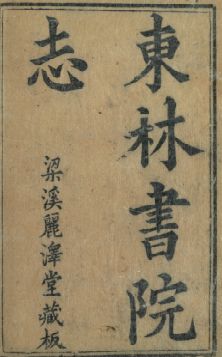 東林書院
志
梁溪麗澤堂藏板